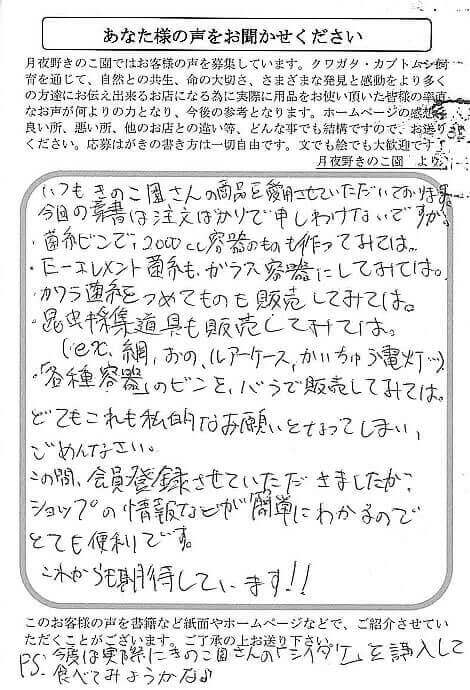 あなた様の声をお聞かせください
月夜野きのこ園ではお客様の声を募集しています。クワガタ・カブトムシ飼
育を通じて、自然との共生、命の大切さ、さまざまな発見と感動をより多く
の方達にお伝え出来るお店になる為に実際に用品をお使い頂いた皆様の率直
なお声が何よりの力となり、今後の参考となります。ホームページの感想、
良い所、悪い所、他のお店との違い等、どんな事でも結構ですので、お送り
ください。応募はがきの書き方は一切自由です。文でも絵でも大歓迎です！
月夜野きのこ園 より
いつもきのこ園さんの商品を愛用させていただいております。
今回の葉書は注文ばかりで申しわけないですが。
・菌糸ビンで、2000cc容器のものも作ってみては。
・Eーエレメント菌糸も、ガラス容器にしてみては。
・カワラ菌糸をつめてものも販売してみては。
・昆虫採集道具も販売してみては。
(ex. 網、おの、ルアーケース、かいちゅう電灯…)
・「各種容器」のビンを、バラで販売してみては。
どてもこれも私的なお願いとなってしまい、
ごめんなさい。
この間、会員登録させていただきましたか?
ショップの情報などが簡単にわかるので
とても便利です。
これからも期待しています!!
このお客様の声を書籍など紙面やホームページなどで、ご紹介させていた
だくことがございます。ご了承の上お送り下さい。
PS. 今度は実際にきのこ園さんの「シイタケ」を購入して
食べてみようかな♪